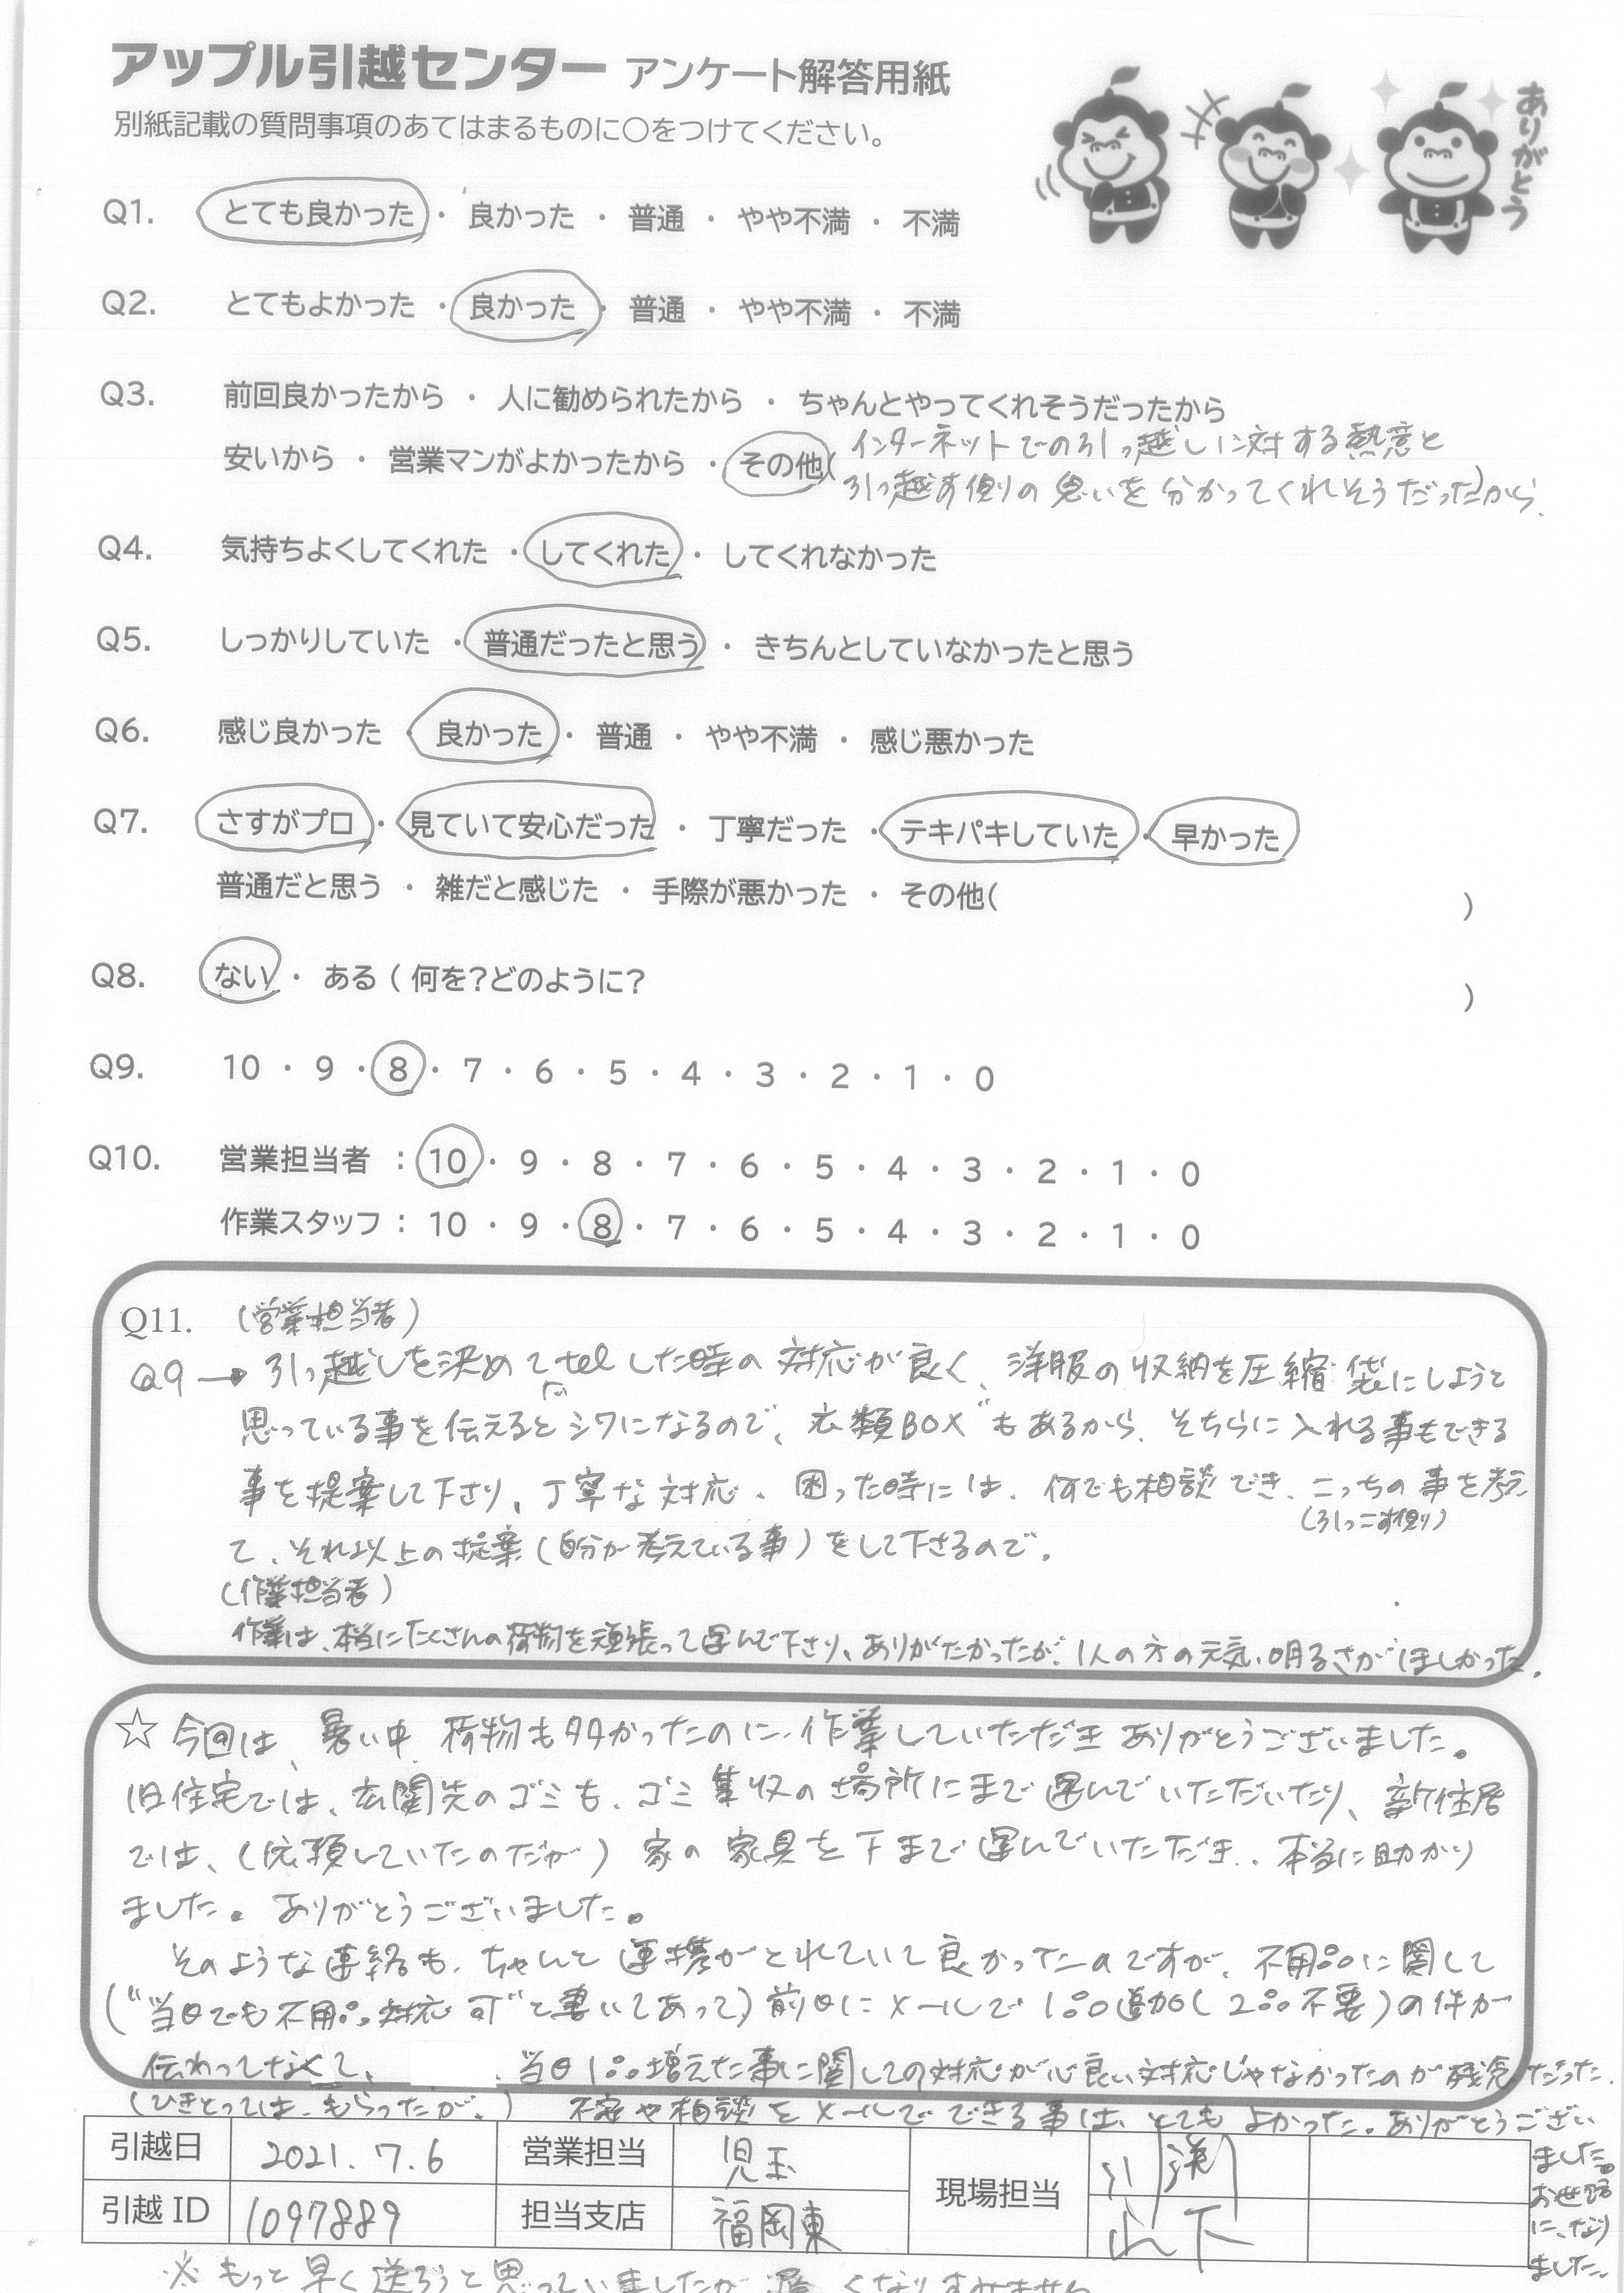 アップル引越センター アンケート解答用紙
別紙記載の質問事項のあてはまるものに○をつけてください。
ありがとう
Q1. とても良かった ・ 良かった ・ 普通 ・ やや不満 ・ 不満
Q2. とてもよかった ・ 良かった ・ 普通 ・ やや不満 ・ 不満
Q3. 前回良かったから ・ 人に勧められたから ・ ちゃんとやってくれそうだったから
安いから ・ 営業マンがよかったから ・ その他( インターネットでの引っ越しに対する熱意と
引っ越す側の思いを分かってくれそうだった)から、
Q4. 気持ちよくしてくれた ・ してくれた ・ してくれなかった
Q5. しっかりしていた ・ 普通だったと思う ・ きちんとしていなかったと思う
Q6. 感じ良かった ・ 良かった ・ 普通 ・ やや不満 ・ 感じ悪かった
Q7. さすがプロ ・ 見ていて安心だった ・ 丁寧だった ・ テキパキしていた ・ 早かった
普通だと思う ・ 雑だと感じた ・ 手際が悪かった ・ その他( )
Q8. ない ・ ある ( 何を?どのように? )
Q9. 10 ・ 9 ・ 8 ・ 7 ・ 6 ・ 5 ・ 4 ・ 3 ・ 2 ・ 1 ・ 0
Q10. 営業担当者 : 10 ・ 9 ・ 8 ・ 7 ・ 6 ・ 5 ・ 4 ・ 3 ・ 2 ・ 1 ・ 0
作業スタッフ : 10 ・ 9 ・ 8 ・ 7 ・ 6 ・ 5 ・ 4 ・ 3 ・ 2 ・ 1 ・ 0
Q11. (営業担当者)
Q9 → 引っ越しを決めてtelした時の対応が良く、洋服の収納を圧縮袋にしようと
思っている事を伝えると シワになるので、"衣類BOX"もあるから、そちらに入れる事もできる
事を提案して下さり、丁寧な対応。困った時には、何でも相談でき、こっちの事を考え
(引っこす側)
て、それ以上の提案(自分が考えている事)をして下さるので。
(作業担当者)
作業は、本当にたくさんの荷物を頑張って運んで下さり、ありがたかったが、1人の方の元気、明るさがほしかった。
☆ 今回は、暑い中、荷物も多かったのに、作業していただき ありがとうございました。
旧住宅では、玄関先のゴミも、ゴミ集収の場所にまで運んでいただいたり、新住居
では、(依頼していたのだが) 家の家具を下まで運んでいただき、本当に助かり
ました。ありがとうございました。
そのような連絡も、ちゃんと連携がとれていて良かったのですが、不用品に関して
("当日でも不用品対応可"と書いてあって) 前日にメールで1品追加(2品不要)の件が
伝わってなくて、 当日1品増えた事に関しての対応が心良い対応じゃなかったのが残念だった。
(ひきとっては、もらったが、) 不安や相談をメールでできる事は、とてもよかった。ありがとうござい
ました。
お世話
に、なり
ました。
引越日 2021.7.6 営業担当 児玉 現場担当 引渕
引越ID 1097889 担当支店 福岡東 山下
※ もっと早く送ろうと思っていましたが 遅くなりすみません